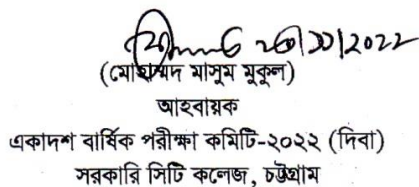 ২০/১১/২০২২
(মোহাম্মদ মাসুম মুকুল)
আহবায়ক
একাদশ বার্ষিক পরীক্ষা কমিটি-২০২২ (দিবা)
সরকারি সিটি কলেজ, চট্টগ্রাম